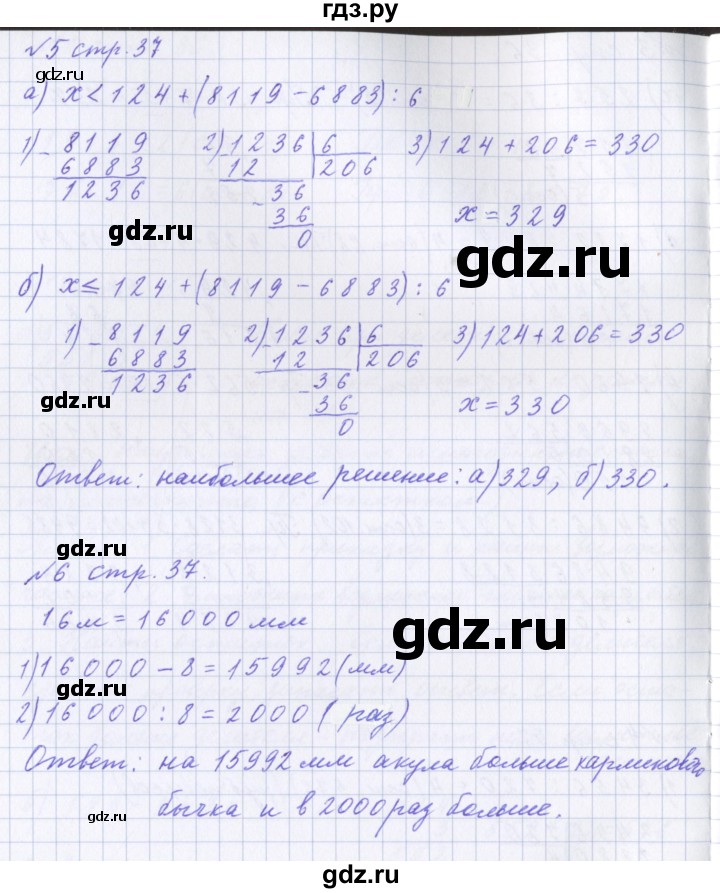 гдз.ру
№5 стр. 37
а) x < 124 + (8119 − 6883) : 6
1) − 8119
6883
1236
2) − 1236 | 6
12 | 206
− 36
36
0
3) 124 + 206 = 330
x = 329
gdz.ru
gdz.ru
б) x ≤ 124 + (8119 − 6883) : 6
1) − 8119
6883
1236
2) − 1236 | 6
12 | 206
− 36
36
0
3) 124 + 206 = 330
x = 330
gdz.ru
Ответ: наибольшее решение: а) 329, б) 330.
gdz.ru
№6 стр. 37.
16 м = 16000 мм
gdz.ru
1) 16000 − 8 = 15992 (мм)
gdz.ru
2) 16000 : 8 = 2000 (раз)
Ответ: на 15992 мм акула больше карликового
бычка и в 2000 раз больше.
gdz.ru
gdz.ru